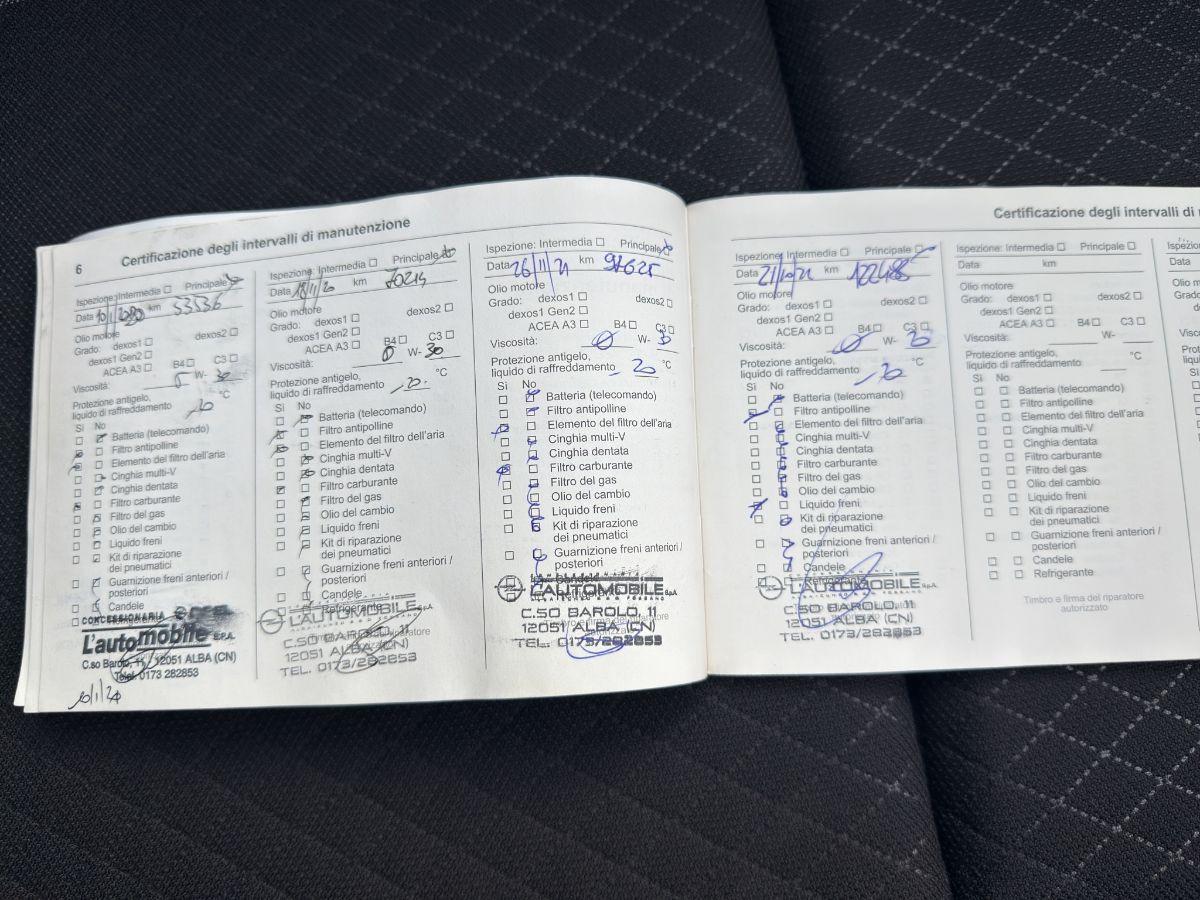 6
Certificazione degli intervalli di manutenzione
Ispezione: Intermedia Principale
Data 10/1/2020 km 53536
Olio motore
Grado: dexos1 dexos2
dexos1 Gen2
ACEA A3 B4 C3
Viscosità: W- 30
Protezione antigelo,
liquido di raffreddamento -20 °C
Sì No
Batteria (telecomando)
Filtro antipolline
Elemento del filtro dell'aria
Cinghia multi-V
Cinghia dentata
Filtro carburante
Filtro del gas
Olio del cambio
Liquido freni
Kit di riparazione
dei pneumatici
Guarnizione freni anteriori /
posteriori
Candele
CONCESSIONARIA
L'automobile S.P.A.
C.so Barolo, 11 / 12051 ALBA (CN)
Telef. 0173 282853
10/1/20
Ispezione: Intermedia Principale
Data 18/11/20 km 70214
Olio motore
Grado: dexos1 dexos2
dexos1 Gen2
ACEA A3 B4 C3
Viscosità: 0 W- 30
Protezione antigelo,
liquido di raffreddamento -20 °C
Sì No
Batteria (telecomando)
Filtro antipolline
Elemento del filtro dell'aria
Cinghia multi-V
Cinghia dentata
Filtro carburante
Filtro del gas
Olio del cambio
Liquido freni
Kit di riparazione
dei pneumatici
Guarnizione freni anteriori /
posteriori
Candele
Refrigerante
L'AUTOMOBILE S.p.A.
C.SO BAROLO, 11
12051 ALBA (CN)
TEL. 0173/282853
Ispezione: Intermedia Principale
Data 26/11/21 km 97625
Olio motore
Grado: dexos1 dexos2
dexos1 Gen2
ACEA A3 B4 C3
Viscosità: 0 W- 30
Protezione antigelo,
liquido di raffreddamento -20 °C
Sì No
Batteria (telecomando)
Filtro antipolline
Elemento del filtro dell'aria
Cinghia multi-V
Cinghia dentata
Filtro carburante
Filtro del gas
Olio del cambio
Liquido freni
Kit di riparazione
dei pneumatici
Guarnizione freni anteriori /
posteriori
Candele
L'AUTOMOBILE S.p.A.
C.SO BAROLO, 11
12051 ALBA (CN)
TEL. 0173/282853
Certificazione degli intervalli di
Ispezione: Intermedia Principale
Data 21/10/22 km 122488
Olio motore
Grado: dexos1 dexos2
dexos1 Gen2
ACEA A3 B4 C3
Viscosità: 0 W- 30
Protezione antigelo,
liquido di raffreddamento -20 °C
Sì No
Batteria (telecomando)
Filtro antipolline
Elemento del filtro dell'aria
Cinghia multi-V
Cinghia dentata
Filtro carburante
Filtro del gas
Olio del cambio
Liquido freni
Kit di riparazione
dei pneumatici
Guarnizione freni anteriori /
posteriori
Candele
Refrigerante
L'AUTOMOBILE S.p.A.
C.SO BAROLO, 11
12051 ALBA (CN)
TEL. 0173/282853
Ispezione: Intermedia Principale
Data km
Olio motore
Grado: dexos1 dexos2
dexos1 Gen2
ACEA A3 B4 C3
Viscosità: W-
Protezione antigelo,
liquido di raffreddamento °C
Sì No
Batteria (telecomando)
Filtro antipolline
Elemento del filtro dell'aria
Cinghia multi-V
Cinghia dentata
Filtro carburante
Filtro del gas
Olio del cambio
Liquido freni
Kit di riparazione
dei pneumatici
Guarnizione freni anteriori /
posteriori
Candele
Refrigerante
Timbro e firma del riparatore
autorizzato
Data
Grado:
Sì